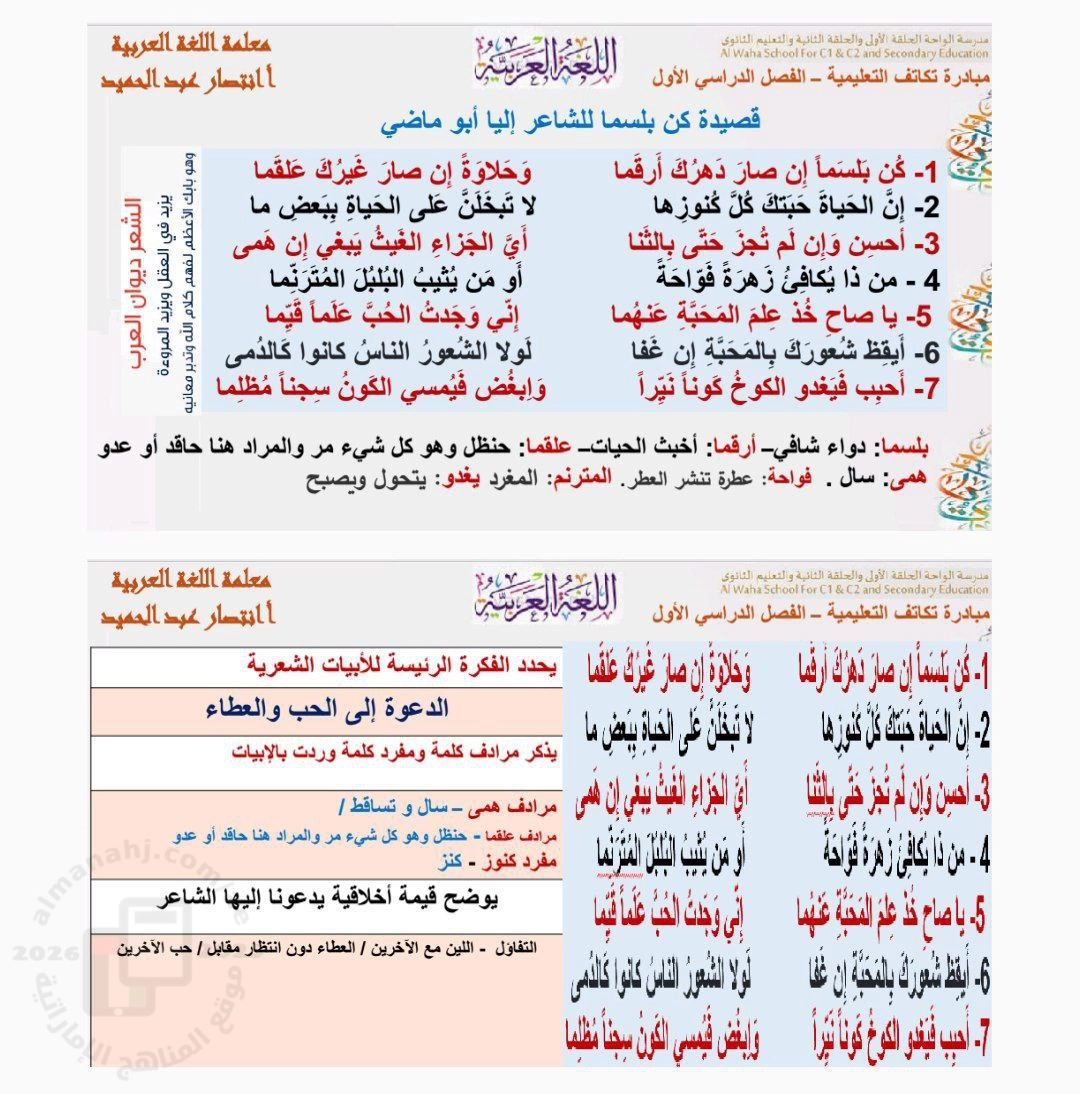 مدرسة الواحة الحلقة الأولى والحلقة الثانية والتعليم الثانوي
Al Waha School For C1 & C2 and Secondary Education
مبادرة تكاتف التعليمية – الفصل الدراسي الأول
اللغة العربية
معلمة اللغة العربية
أ انتصار عبد الحميد
قصيدة كن بلسما للشاعر إليا أبو ماضي
1- كُن بَلسَماً إِن صارَ دَهرُكَ أَرقَما وَحَلاوَةً إِن صارَ غَيرُكَ عَلقَما
2- إِنَّ الحَياةَ حَبَتكَ كُلَّ كُنوزِها لا تَبخَلَنَّ عَلى الحَياةِ بِبَعضِ ما
3- أَحسِن وَإِن لَم تُجزَ حَتّى بِالثَنا أَيَّ الجَزاءِ الغَيثُ يَبغي إِن هَمى
4 - من ذا يُكافِئُ زَهرَةً فَوّاحَةً أَو مَن يُثيبُ البُلبُلَ المُتَرَنِّما
5- يا صاحِ خُذ عِلمَ المَحَبَّةِ عَنهُما إِنّي وَجَدتُ الحُبَّ عَلَماً قَيِّما
6- أَيقِظ شُعورَكَ بِالمَحَبَّةِ إِن غَفا لَولا الشُعورُ الناسُ كانوا كَالدُمى
7- أَحبِب فَيَغدو الكوخُ كَوناً نَيِّراً وَاِبغُض فَيُمسي الكَونُ سِجناً مُظلِما
الشعر ديوان العرب
يزيد في العقل ويزيد المروءة
وهو بابك الأعظم لفهم كلام الله وتدبر معانيه
بلسما: دواء شافي– أرقما: أخبث الحيات– علقما: حنظل وهو كل شيء مر والمراد هنا حاقد أو عدو
همى: سال . فواحة: عطرة تنشر العطر. المترنم: المغرد يغدو: يتحول ويصبح
مدرسة الواحة الحلقة الأولى والحلقة الثانية والتعليم الثانوي
Al Waha School For C1 & C2 and Secondary Education
مبادرة تكاتف التعليمية – الفصل الدراسي الأول
اللغة العربية
معلمة اللغة العربية
أ انتصار عبد الحميد
1- كُن بَلسَماً إِن صارَ دَهرُكَ أَرقَما وَحَلاوَةً إِن صارَ غَيرُكَ عَلقَما
2- إِنَّ الحَياةَ حَبَتكَ كُلَّ كُنوزِها لا تَبخَلَنَّ عَلى الحَياةِ بِبَعضِ ما
3- أَحسِن وَإِن لَم تُجزَ حَتّى بِالثَنا أَيَّ الجَزاءِ الغَيثُ يَبغي إِن هَمى
4 - من ذا يُكافِئُ زَهرَةً فَوّاحَةً أَو مَن يُثيبُ البُلبُلَ المُتَرَنِّما
5- يا صاحِ خُذ عِلمَ المَحَبَّةِ عَنهُما إِنّي وَجَدتُ الحُبَّ عَلَماً قَيِّما
6- أَيقِظ شُعورَكَ بِالمَحَبَّةِ إِن غَفا لَولا الشُعورُ الناسُ كانوا كَالدُمى
7- أَحبِب فَيَغدو الكوخُ كَوناً نَيِّراً وَاِبغُض فَيُمسي الكَونُ سِجناً مُظلِما
يحدد الفكرة الرئيسة للأبيات الشعرية
الدعوة إلى الحب والعطاء
يذكر مرادف كلمة ومفرد كلمة وردت بالإبيات
مرادف همى – سال و تساقط /
مرادف علقما - حنظل وهو كل شيء مر والمراد هنا حاقد أو عدو
مفرد كنوز - كنز
يوضح قيمة أخلاقية يدعونا إليها الشاعر
التفاؤل - اللين مع الآخرين / العطاء دون انتظار مقابل / حب الآخرين
almanahj.com/ae
2026
موقع المناهج الإماراتية